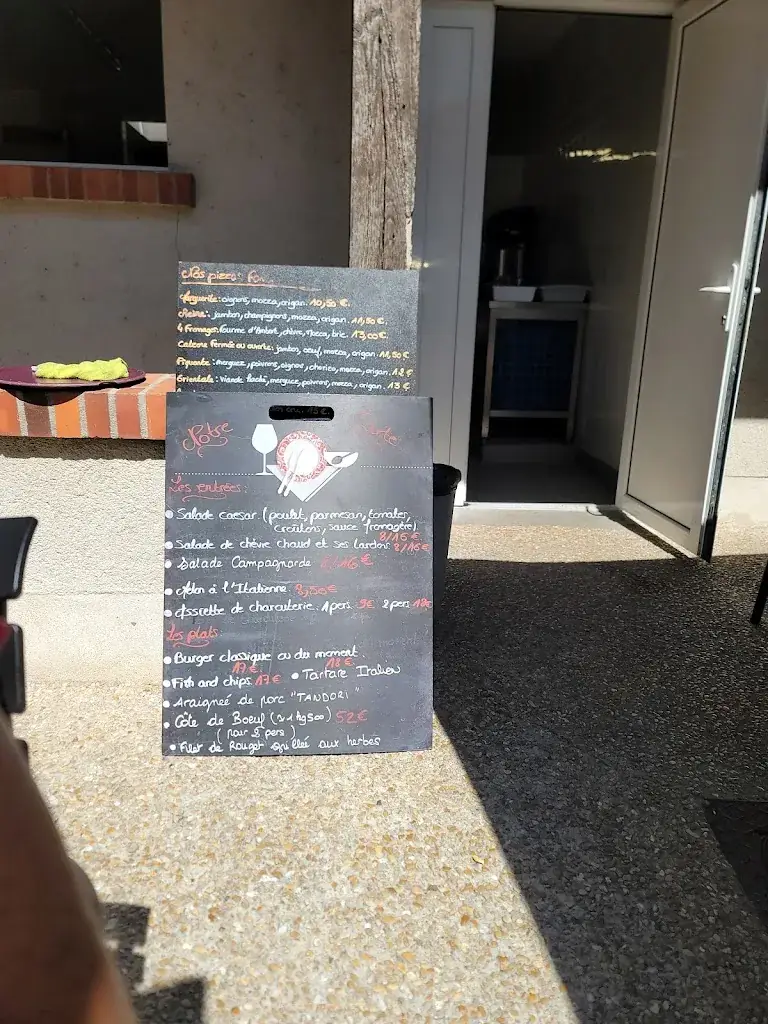 Nos pizzas
Marguerite: oignons, mozza, origan. 10,50 €.
Reine: jambon, champignons, mozza, origan. 11,50 €.
4 Fromages: Fourme d'Ambert, chèvre, Mozza, brie. 13,00 €.
Calzone Fermée ou ouverte: jambon, oeuf, mozza, origan. 11,50 €
Piquante: merguez, poivrons, oignons, chorizo, mozza, origan. 12 €
Orientale: Viande hachée, merguez, poivrons, mozza, origan. 13 €
Notre Carte
Les entrées:
• Salade caesar (poulet, parmesan, tomates,
croûtons, sauce fromagère). 8/16 €
• Salade de chèvre chaud et ses lardons 8/16 €
• Salade Campagnarde 8/16 €
• Melon à l'Italienne 8,50 €
• Assiette de charcuterie. 1 pers 9€ 2 pers
Les plats:
• Burger classique ou du moment.
17 € 18 €
• Fish and chips 17 € • Tartare Italien
• Araignée de porc "TANDORI"
• Côte de Boeuf (± 1 kg 500) 52 €
(pour 2 pers)
• Filet de Rouget grillée aux herbes